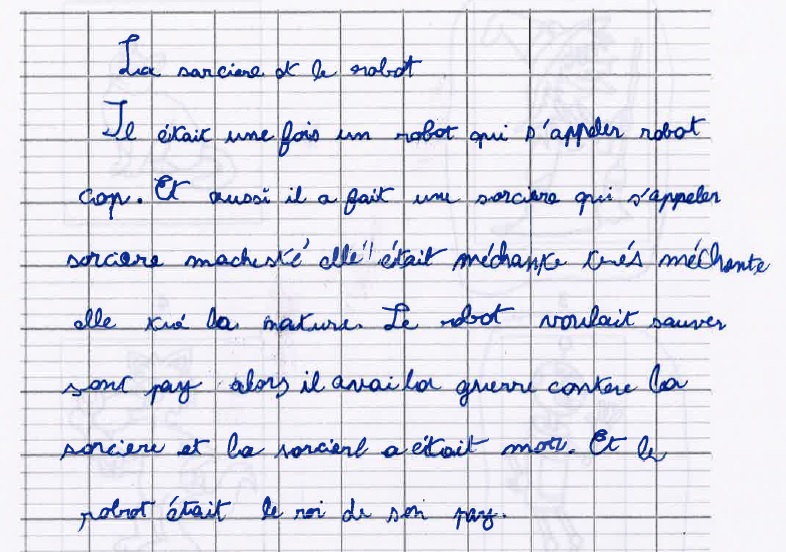 La sorciere et le robot
Il était une fois un robot qui s'appeler robot
cop. Et aussi il a fait une sorciere qui s'appeler
sorciere machesté elle était méchante trés méchente
elle tué la nature. Le robot voulait sauver
sont pay alors il avai la guerre contere la
sorciere et la sorcierl a était mor. Et le
robot était le roi de son pay.